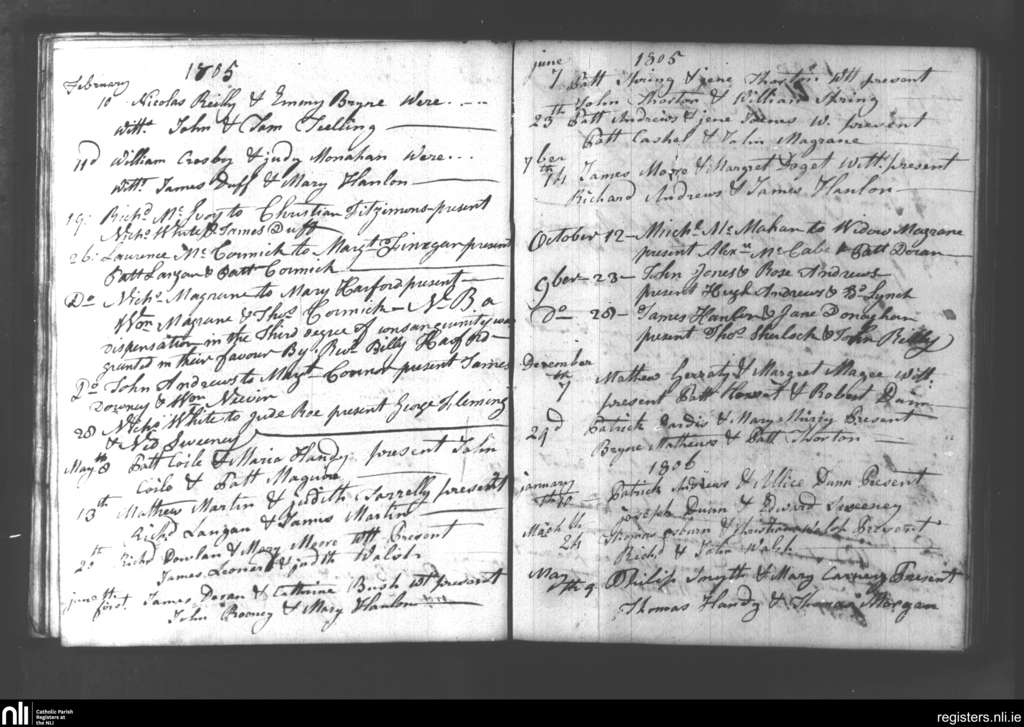 1805
February
10 Nicolas Reilly & Emmy Bryne Were
Witts John & Tam Teelling
11d William Crosby & judy Monahan Were
Witts James Duff & Mary Hanlon
19: Richd Mc Ivoy to Christian Fitzimons present
Nichs White & James Duff
26: Laurence Mc Cormick to Margt Finegan present
Patt Langan & Patt Cormick
Do Nichs Magrane to Mary Harford present
Wm Magrane & Thos Cormick N: B. a
dispensation in the Third degree of consanguinity was
granted in their favour By Revd Billy Harford
Do John Andrews to Margt Connor present James
Downey & Wm Nevin
28 Nichs White to Jude Roe present George Fleming
& Ned Sweeney
May th 8 Patt Coile & Maria Handy present John
Coile & Patt Maguire
13th Mathew Martin & judith Farrelly present
Richd Langan & James Martin
20th Richd Dowlan & Mary Moore Wtt Present
James & judth Walsh
june th first James Doran & Cathrine Bush Wt present
John Rooney & Mary Hanlon
june 1805
7 Patt Spring & jene Thorton Wtt present
John Thorton & William Spring
23th Patt Andrews & jene W. present
Patt Cashel & John Magrane
7ber
th 14 James Moore & Margret Doget Witt: present
Richard Andrews & James Hanlon
October 12 Michs Mc Mahan to Widow Magrane
present Alexr Mc Cabe & Patt Doran
9ber 23 John Jones & Rose Andrews
present Hugh Andrews & Lynch
Do 28 James Hanlon & Jane Donaghan
present Thos Sherlock & John Reilly
December
th 7 Mathew Gerraty & Margret Magee Witt:
present Patt & Robert Dunn
29d Patrick Dardis & Mary Present
Bryne Mathews & Patt Thorton
1806
january
th Patrick Andrews & Allice Dunn Present
joseph Dunn & Edward Sweeney
March th 24 Thomas & Walsh Present
Richd & John Walsh
May th 9 Philip Smyth & Mary Carney Present
Thomas Handy & Thomas Morgan
nli Catholic Parish
Registers at
the NLI
registers.nli.ie